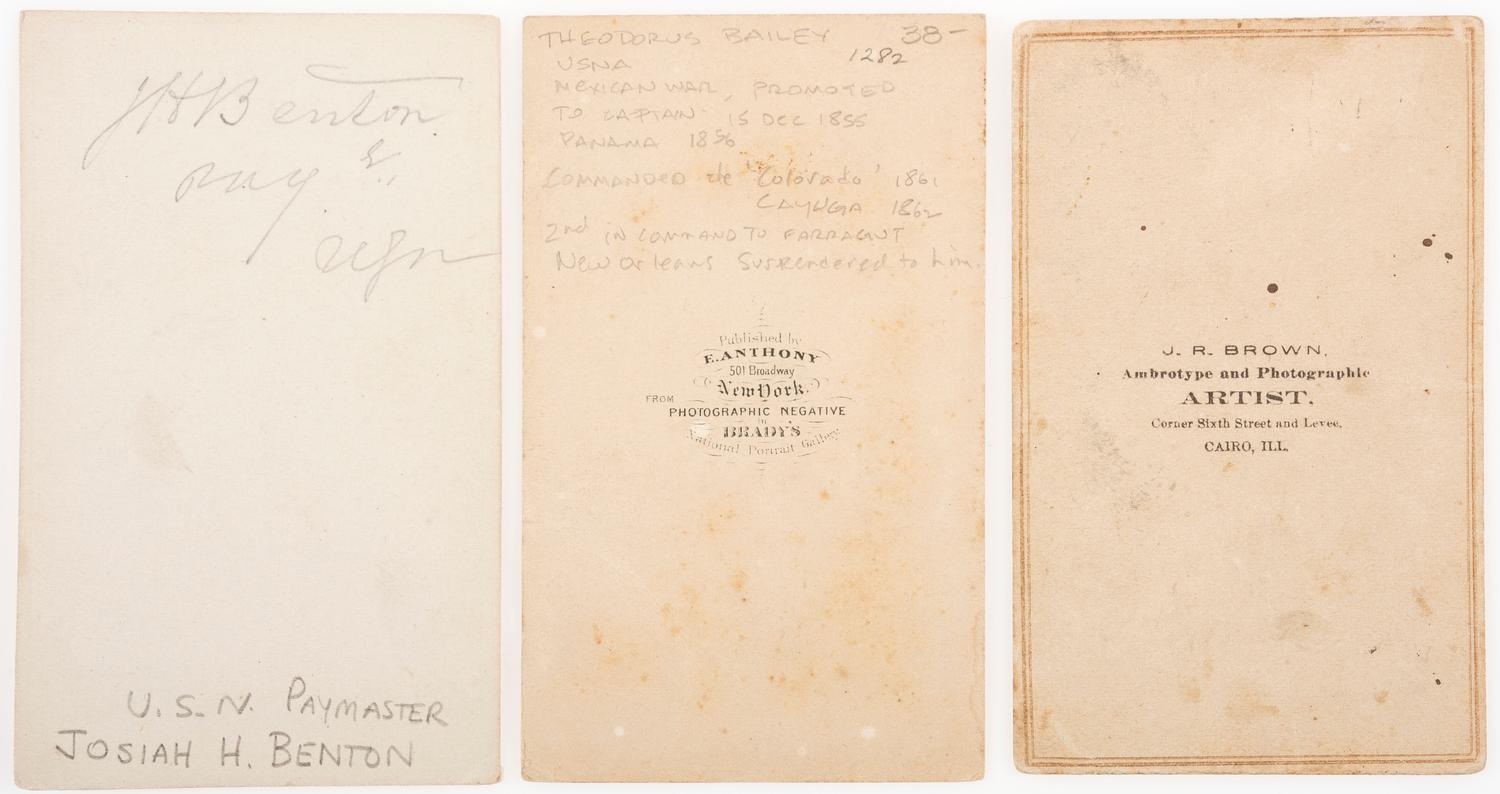 JHBenton
Pay
USN
U.S.N. PAYMASTER
JOSIAH H. BENTON
THEODORUS BAILEY 38-
1282
USNA
MEXICAN WAR, PROMOTED
TO CAPTAIN 15 DEC 1855
PANAMA 1856
COMMANDED the "Colorado" 1861
CAYUGA 1862
2nd IN COMMAND TO FARRAGUT
New Orleans Surrendered to him.
Published by
E. ANTHONY
501 Broadway
New York.
FROM
PHOTOGRAPHIC NEGATIVE
in
BRADY'S
National Portrait Gallery.
J. R. BROWN,
Ambrotype and Photographic
ARTIST,
Corner Sixth Street and Levee,
CAIRO, ILL.